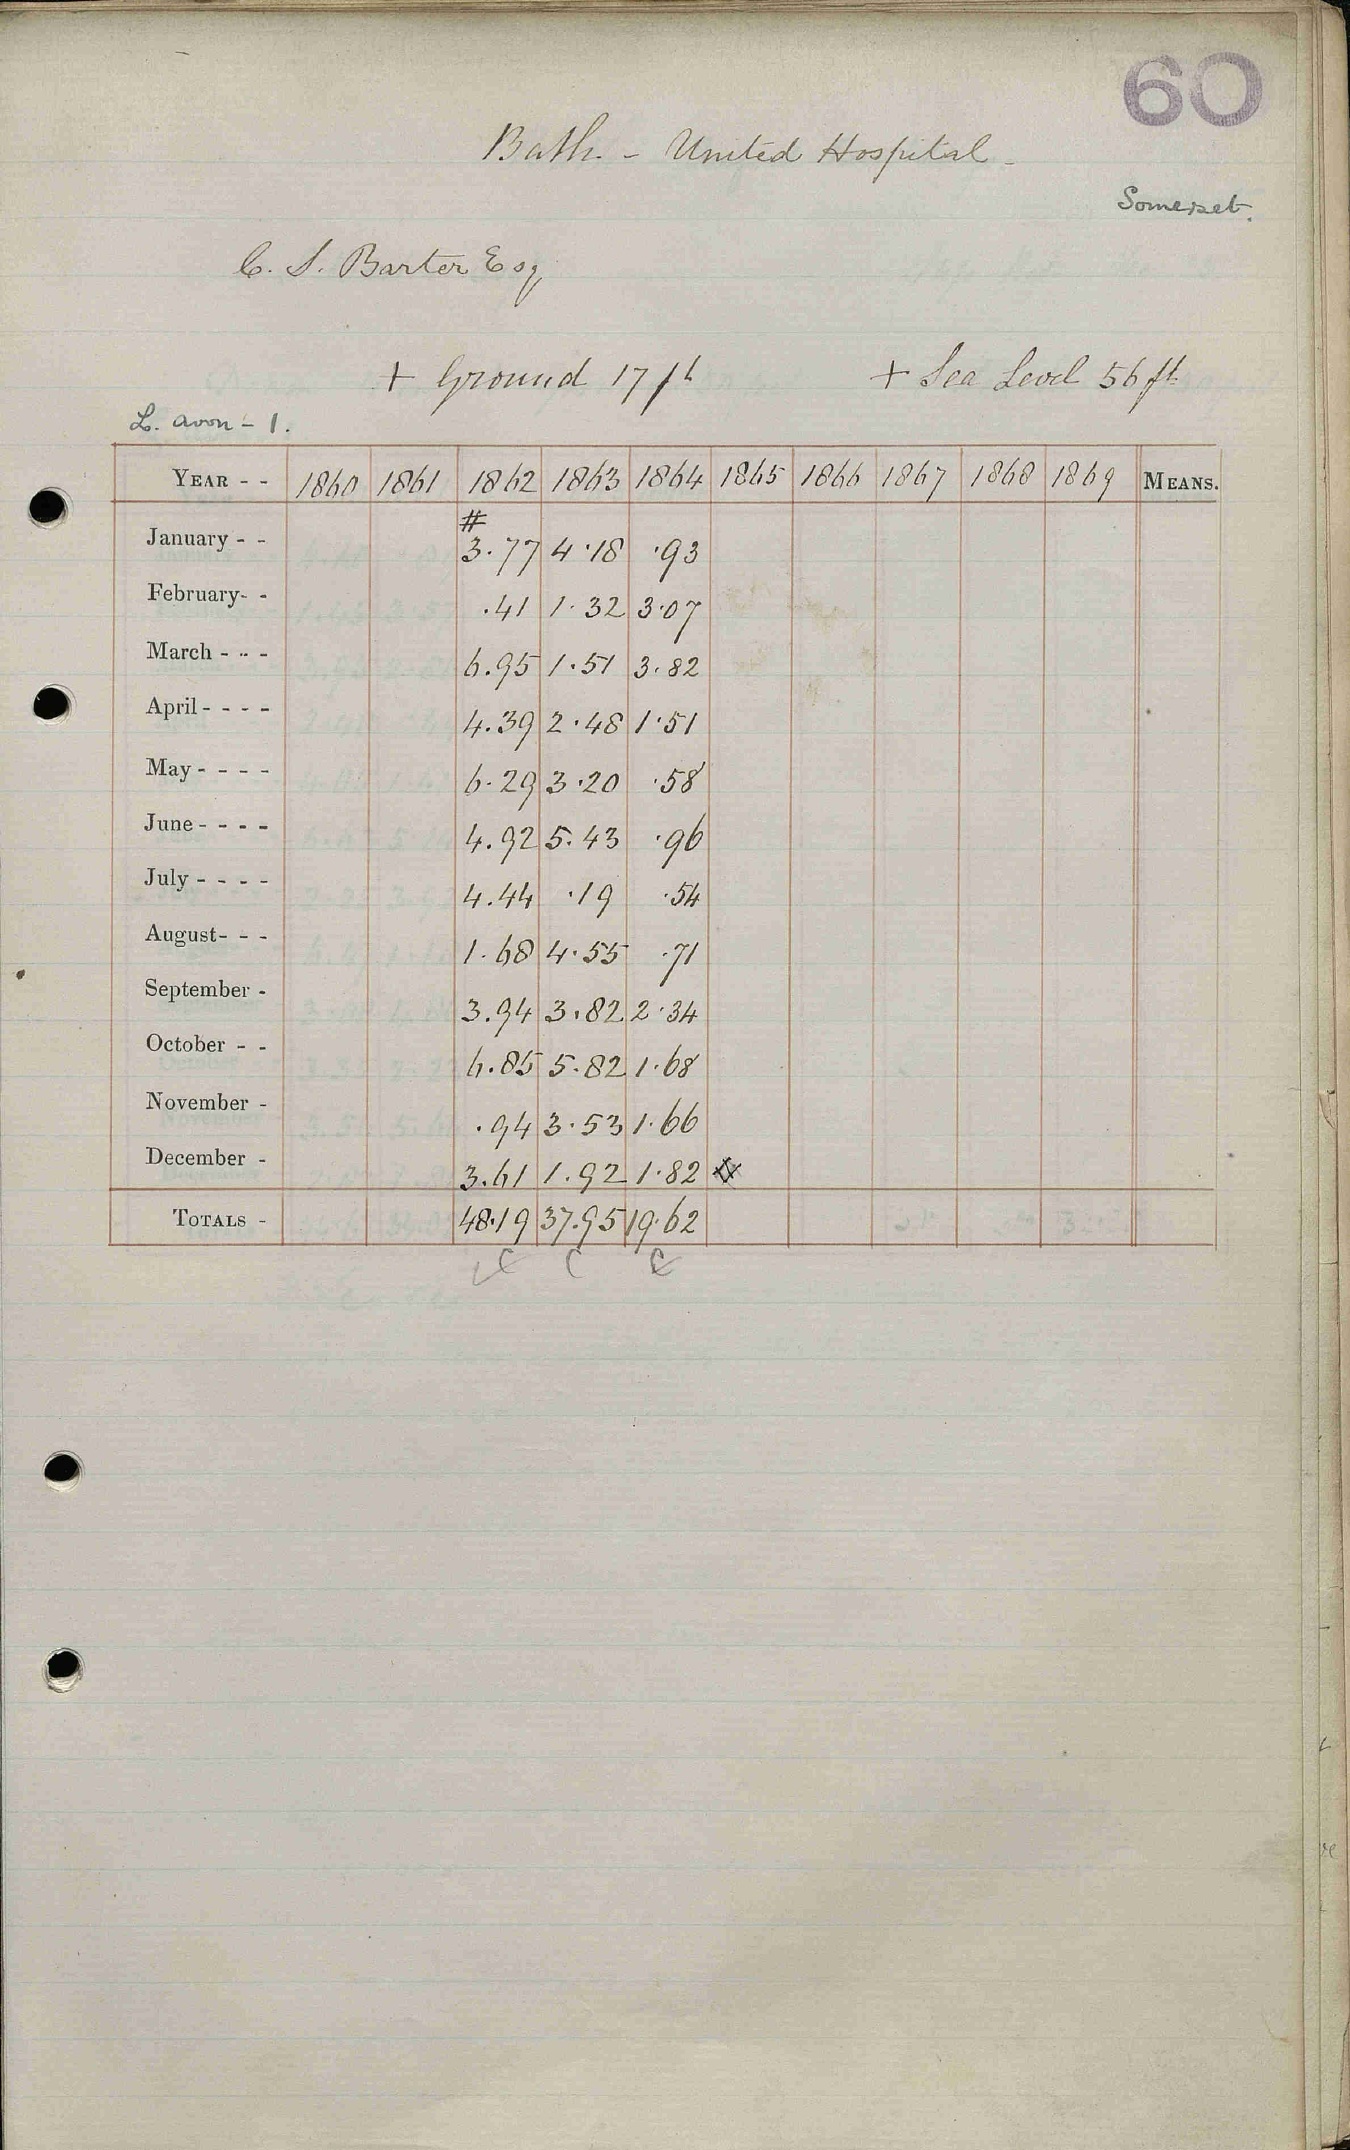 60
Bath. - United Hospital -
Somerset.
C. S. Barter Esq
+ Ground 17 ft + Sea Level 56 ft
L. Avon - 1.
YEAR - - 1860 1861 1862 1863 1864 1865 1866 1867 1868 1869 MEANS.
#
January - - 3.77 4.18 .93
February- - .41 1.32 3.07
March - - - 6.95 1.51 3.82
April - - - - 4.39 2.48 1.51
May - - - - 6.29 3.20 .58
June - - - - 4.92 5.43 .96
July - - - - 4.44 .19 .54
August- - - 1.68 4.55 .71
September - 3.94 3.82 2.34
October - - 6.85 5.82 1.68
November - .94 3.53 1.66
December - 3.61 1.92 1.82
TOTALS - 48.19 37.95 19.62
C C C